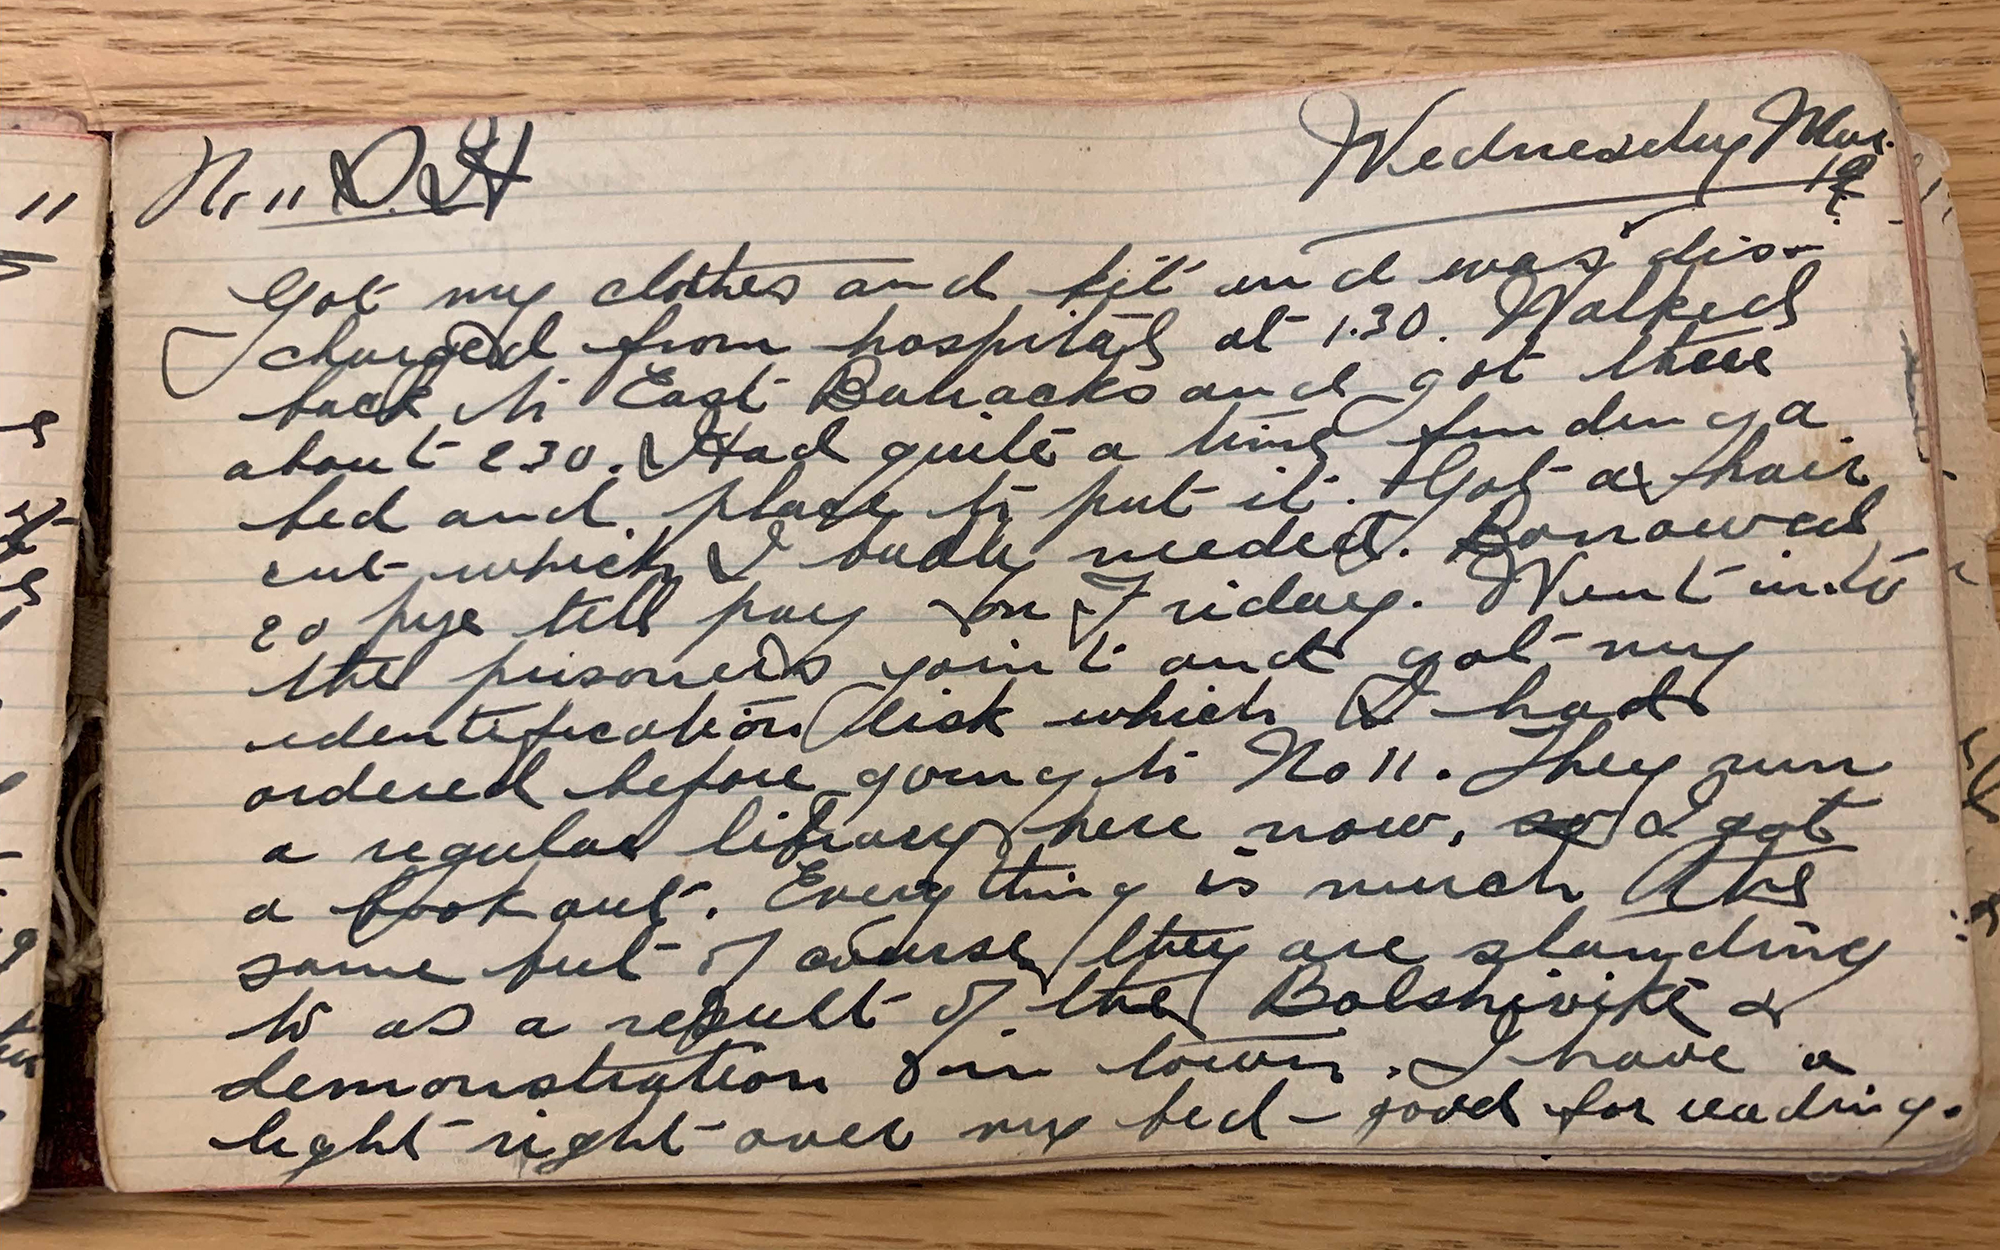 No 11 D.S.H Wednesday Mar. 19
Got my clothes and kit and was dis-
charged from hospital at 1.30. Walked
back to East Barracks and got there
about 230. Had quite a time finding a
bed and place to put it. Got a hair
cut which I badly needed. Borrowed
20 till pay on Friday. Went into
the prisoners joint and got my
identification disk which I had
ordered before going to No 11. They run
a regular library here now, so I got
a book out. Everything is much the
same but of course they are standing
to as a result of the Bolshivike
demonstration in town. I have a
light right over my bed - good for reading.